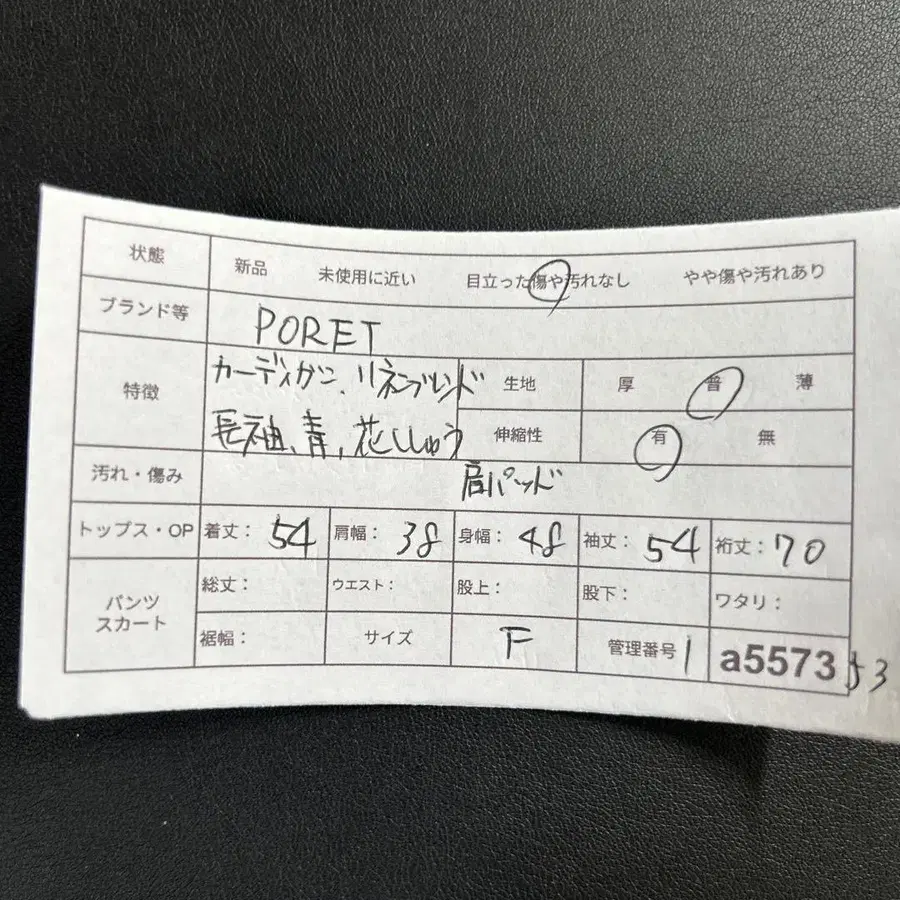 状態 新品 未使用に近い 目立った傷や汚れなし やや傷や汚れあり
ブランド等 PORET
特徴 カーディガン、リネンブレンド 生地 厚 普 薄
長袖、青、花ししゅう 伸縮性 有 無
汚れ・傷み 肩パッド
トップス・OP 着丈: 54 肩幅: 38 身幅: 48 袖丈: 54 裄丈: 70
パンツ スカート 総丈: ウエスト: 股上: 股下: ワタリ:
裾幅: サイズ F 管理番号 1 a5573 53